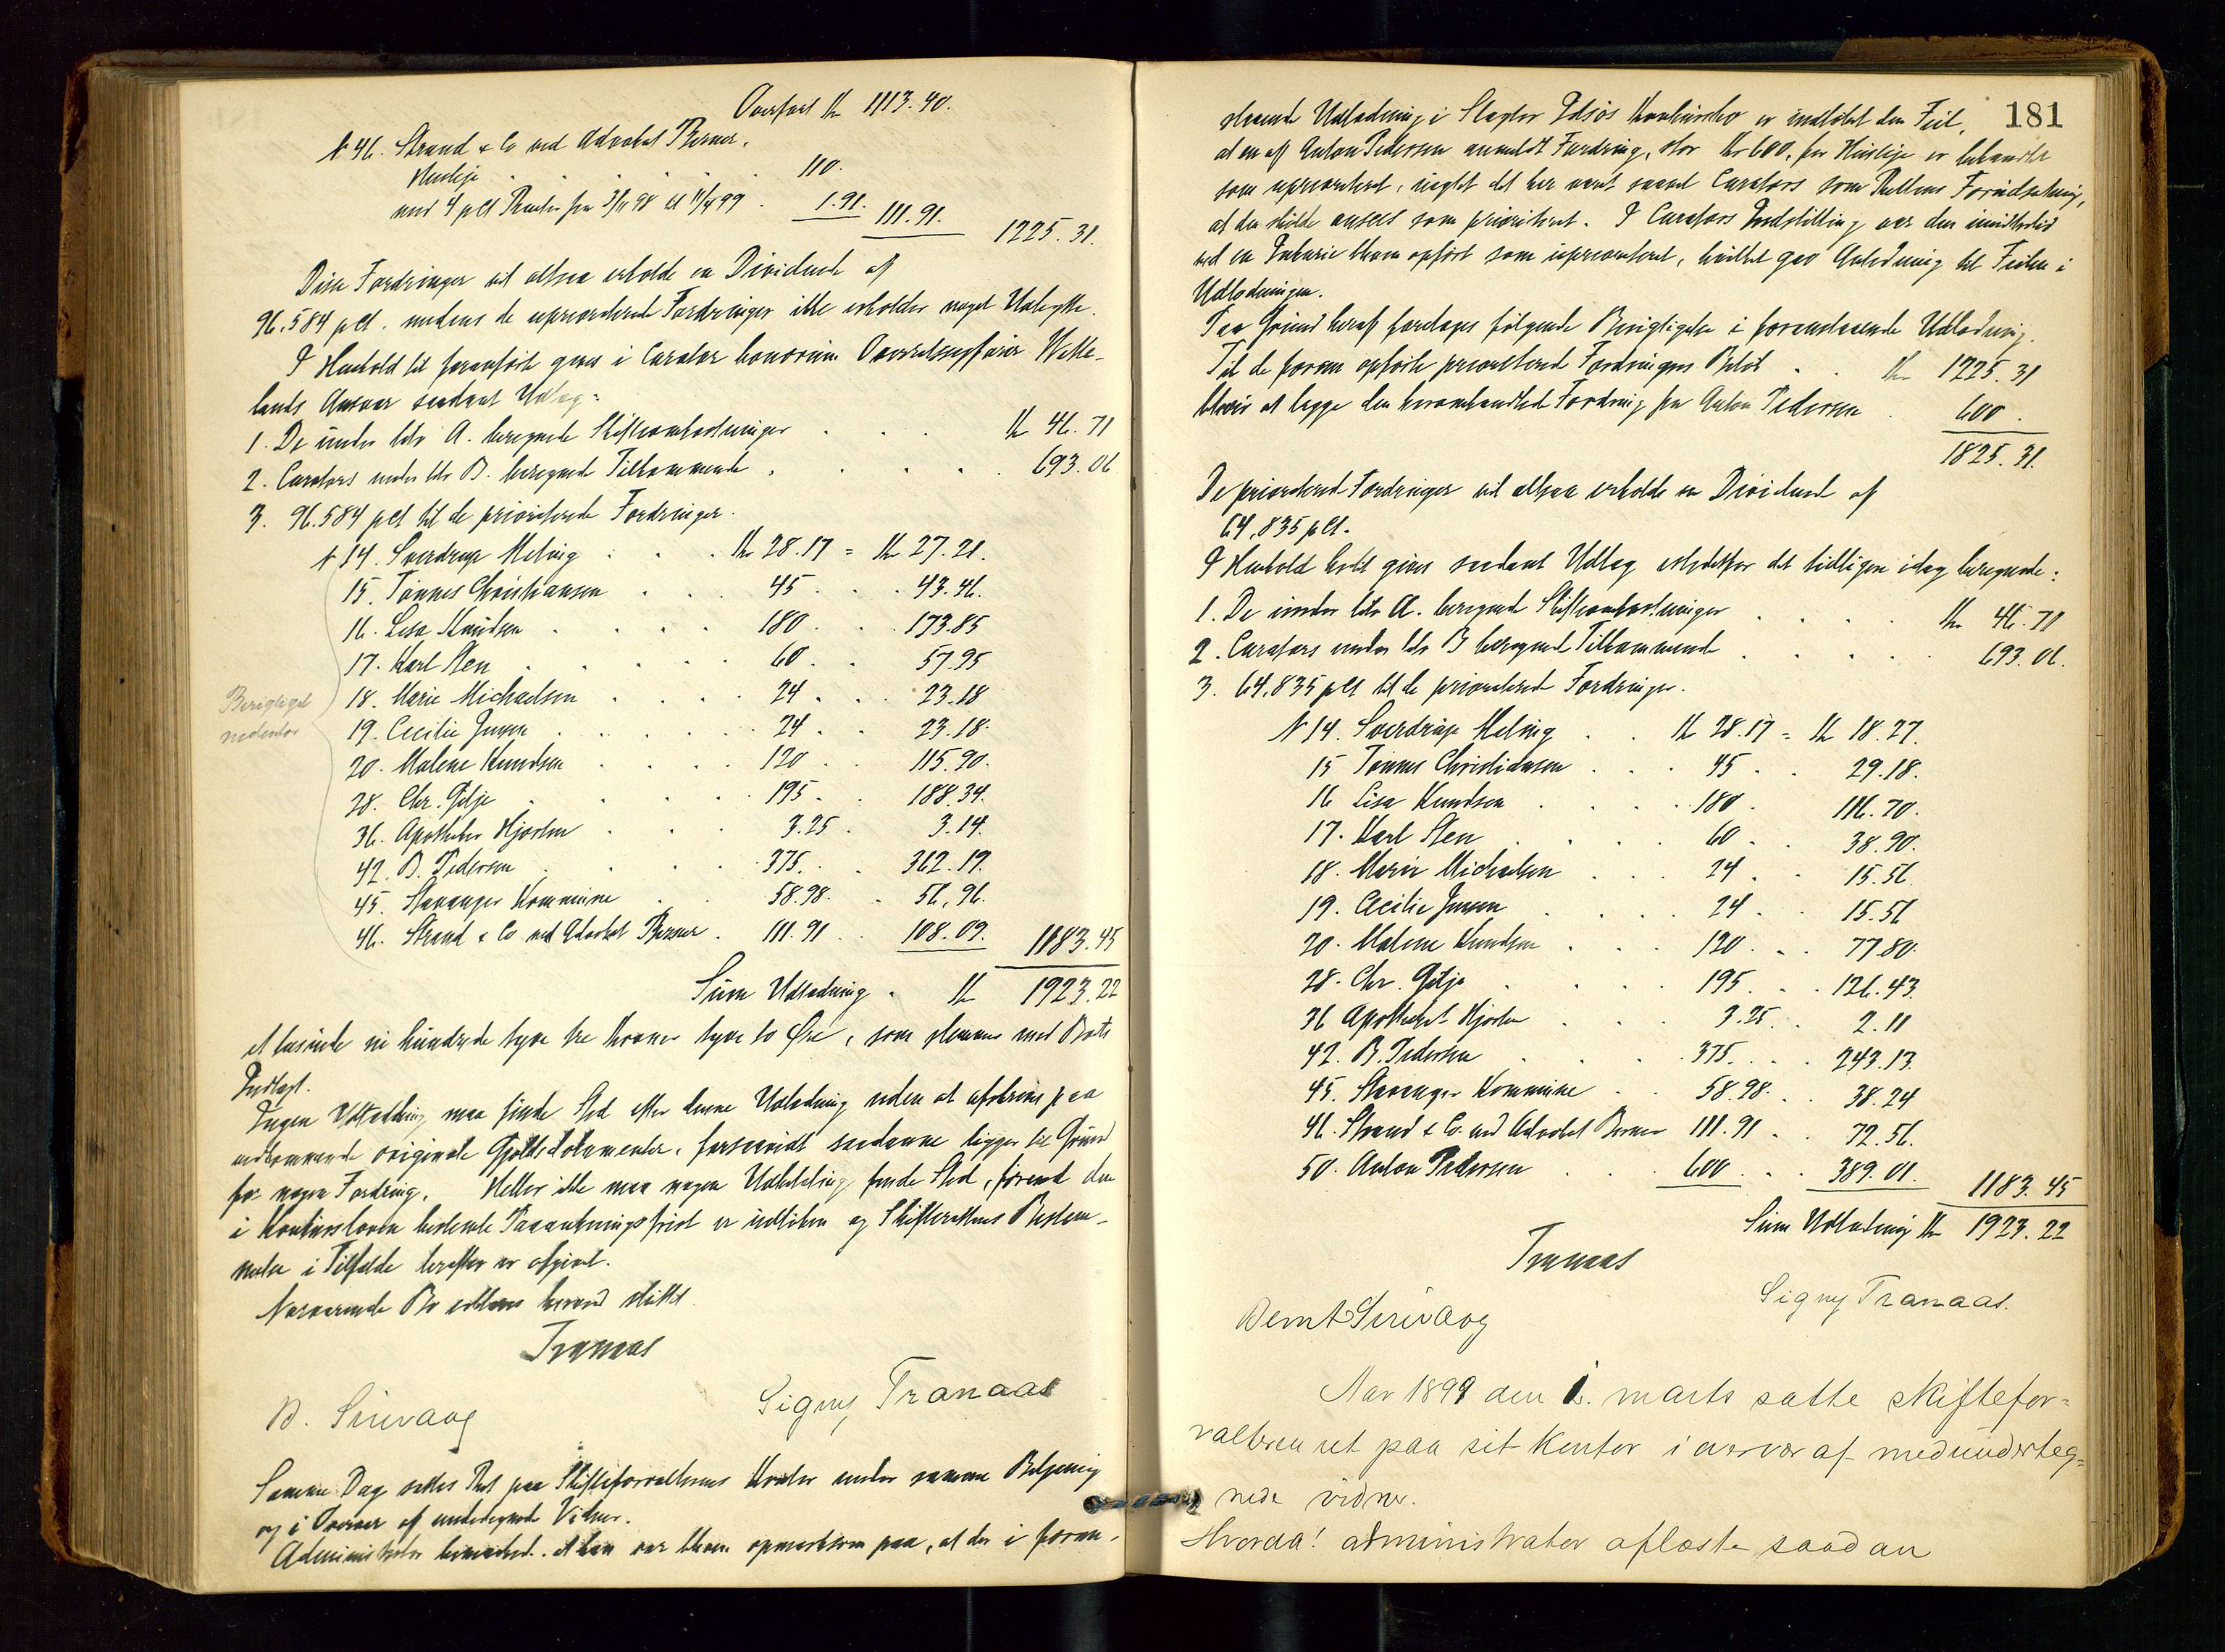 Overført Kr 1113.40.
№ 46. Strand & Co ved Advokat Berner.
Husleje . . . . 110.
med 4 pCt Renter fra 3/11 98 til 11/4 99 . 1.91. 111.91. 1225.31.
Disse Fordringer vil altsaa erholde en Dividende af
96.584 pCt. medens de uprioriterede Fordringer ikke erholder noget Udbytte.
I Henhold til foranførte gives i Curator bonorum Overretssagfører Wette-
lands Ansvar saadant Udlæg:
1. De under litr A. beregnede Skifteomkostninger . . . Kr 46.71
2. Curators under litr B. beregnede Tilkommende . . . . 693.06
3. 96.584 pCt til de prioriterede Fordringer.
№ 14. Sverdrup Meling . . . Kr 28.17 = Kr 27.21.
15. Tønnes Christiansen . . . 45 . . 43.46.
16. Lisa Knudsen . . . . 180 . . 173.85
17. Karl Sten . . . . . 60 . . 57.95
18. Marie Michaelsen . . . 24 . . 23.18
19. Cecilie Jensen . . . . 24 . . 23.18.
20. Malene Knudsen . . . . 120 . . 115.90.
28. Chr. Gilje . . . . 195 . . 188.34.
36. Apotheker Hjorten . . . 3.25 . 3.14.
42. B. Pedersen . . . . 375. . 362.19.
45. Stavanger Kommune . . 58.98. . 56,96.
46. Strand & Co ved Advokat Berner . 111.91 . . 108.09. 1183.45
Berigtiget
nedenfor
Sum Udlodning . Kr 1923.22
et tusinde ni hundrede tyve tre Kroner tyve to Øre, som stemmer med Boets
Indtægt.
Ingen Udbetaling maa finde Sted efter denne Udlodning uden at afskrives paa
vedkommende originale Gjældsdokumenter, forsaavidt saadanne ligger til Grund
for nogen Fordring. Heller ikke maa nogen Udbetaling finde Sted, førend den
i Konkursloven bestemte Paaankningsfrist er udløben og Skifterettens Bestem-
melse i Tilfælde herefter er afgivet.
Nærværende Bo erklæres herved sluttet.
Tranaas
B. Sirevaag Signy Tranaas
Samme Dag sattes Ret paa Skifteforvalterens Kontor under samme Betjening
og i Overvær af undertegnede Vidner.
Administrator bemærked. at han var bleven opmærksom paa, at der i foran-
181
staaende Udlodning i Slagter Edsøs Konkursbo er indløbet den Feil,
at en af Anton Pedersen anmeldt Fordring, stor Kr 600, for Husleje er behandlet
som uprioriteret, uagtet det har været saavel Curators som Rettens Forudsætning,
at den skulde ansees som prioriteret. I Curators Indstilling var den imidlertid
ved en Inkurie bleven opført som uprioriteret, hvilket gav Anledning til Feilen i
Udlodningen.
Paa Grund heraf foretages følgende Berigtigelse i foranstaaende Udlodning.
Til de foran opførte prioriterede Fordringers Beløb . . Kr 1225.31
bliver at lægge den heromhandlede Fordring fra Anton Pedersen . 600.
1825.31.
De prioriterede Fordringer vil altsaa erholde en Dividende af
64,835 pCt.
I Henhold hertil gives saadant Udlæg istedetfor det tidligere idag beregnede:
1. De under litr A. beregnede Skifteomkostninger . . . . Kr 46.71
2. Curators under litr B beregnede Tilkommende . . . . 693.06.
3. 64,835 pCt til de prioriterede Fordringer.
№ 14. Sverdrup Meling . . Kr 28.17 = Kr 18.27.
15 Tønnes Christiansen . . . 45 . . 29.18.
16 Lisa Knudsen . . . . 180 . 116.70.
17. Karl Sten . . . . 60 . . 38.90.
18. Marie Michaelsen . . . 24 . . 15.56
19. Cecilie Jensen . . . . 24 . . 15.56
20. Malene Knudsen . . . 120 . . 77.80.
28. Chr. Gilje . . . . 195 . . 126.43.
36 Apotheker Hjorten . . . 3.25. . 2.11
42. B. Pedersen . . . . 375. . . . 243.13.
45. Stavanger Kommune . . 58.98. . . 38.24
46. Strand & Co. ved Advokat Berner 111.91 . . 72.56.
50. Anton Pedersen . . . 600 . . 389.01. 1183.45
Sum Udlodning Kr 1923.22
Tranaas
Bernt Sirevaag Signy Tranaas.
Aar 1899 den 1. marts satte skiftefor-
valteren ret paa sit kontor i overvær af medunderteg-
nede vidner.
Hvorda! administrator aflæste saadan